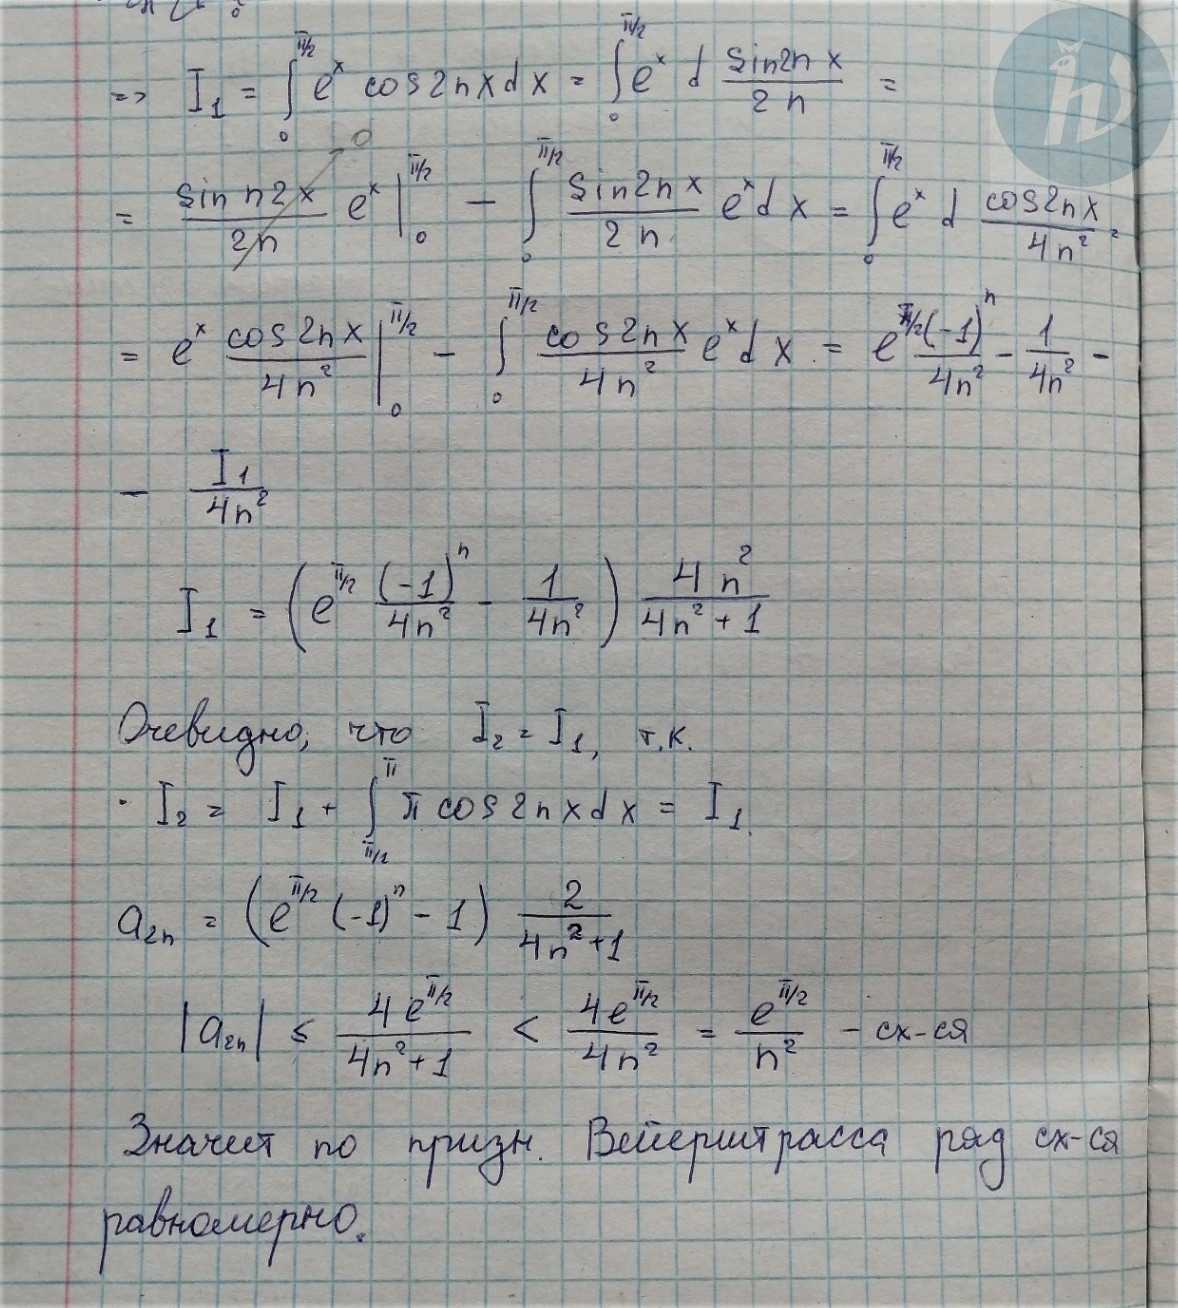 => I₁ = ∫₀^{π/2} e^x cos2nxdx = ∫₀^{π/2} e^x d (sin2nx)/(2n) =
= (sin n2x)/(2n) e^x |₀^{π/2} → 0 − ∫₀^{π/2} (sin2nx)/(2n) e^x dx = ∫₀^{π/2} e^x d (cos2nx)/(4n²) =
= e^x (cos2nx)/(4n²) |₀^{π/2} − ∫₀^{π/2} (cos2nx)/(4n²) e^x dx = e^{π/2} (-1)^n/(4n²) − 1/(4n²) −
− I₁/(4n²)
I₁ = (e^{π/2} (-1)^n/(4n²) − 1/(4n²)) 4n²/(4n²+1)
Очевидно, что I₂ = I₁, т.к.
· I₂ = I₁ + ∫_{π/2}^{π} π cos2nxdx = I₁.
a₂ₙ = (e^{π/2} (-1)^n − 1) 2/(4n²+1)
|a₂ₙ| ≤ 4e^{π/2}/(4n²+1) < 4e^{π/2}/(4n²) = e^{π/2}/n² − сх-ся
Значит по призн. Вейерштрасса ряд сх-ся
равномерно.